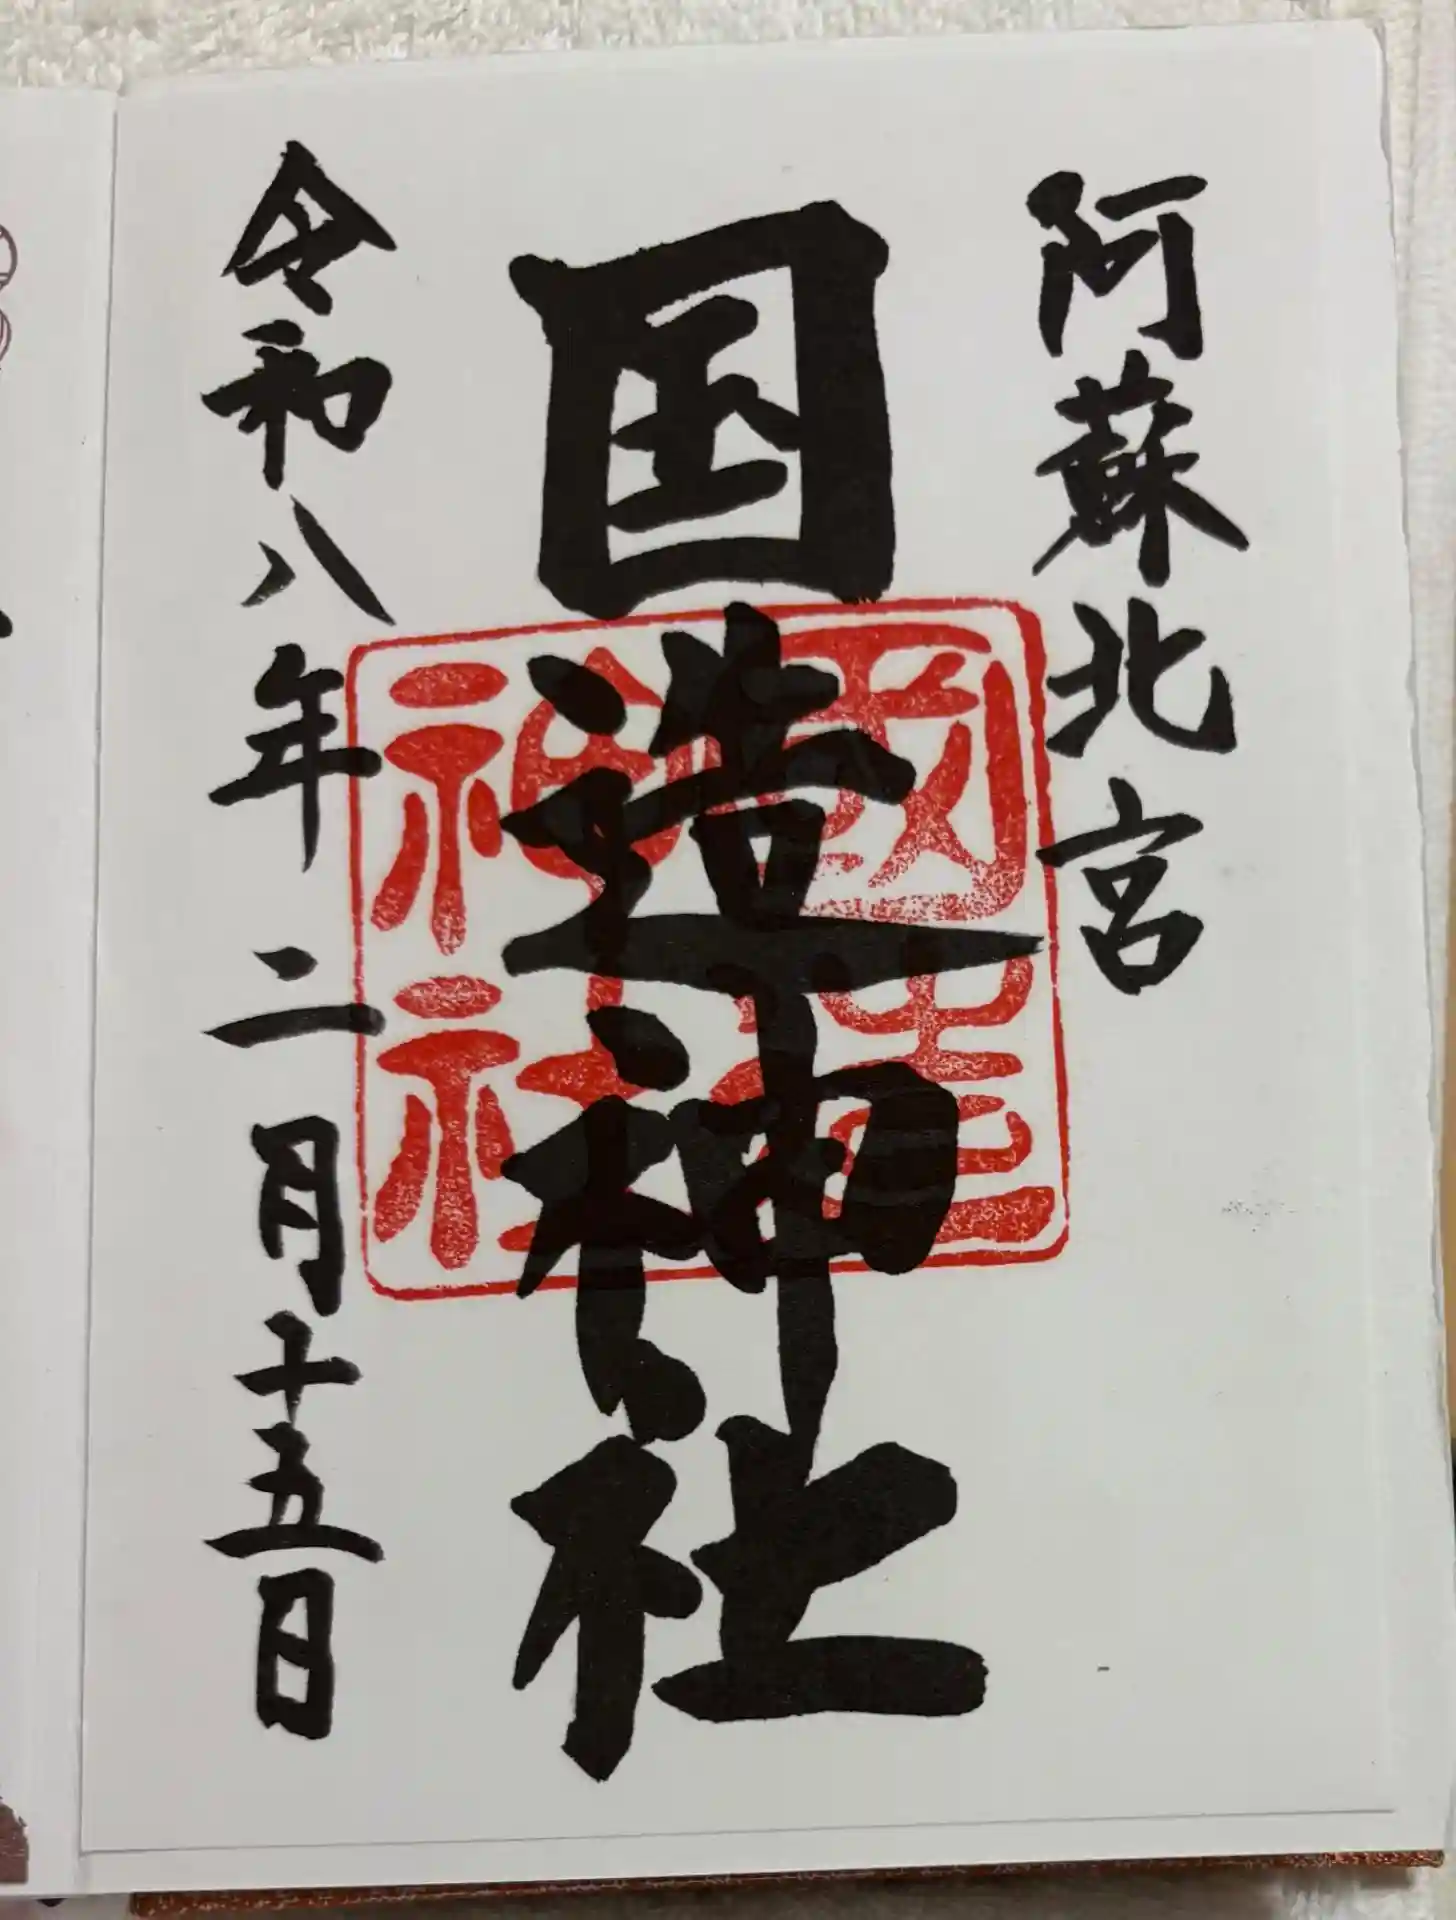 阿蘇北宮
国造神社
國造神社
令和八年二月十五日